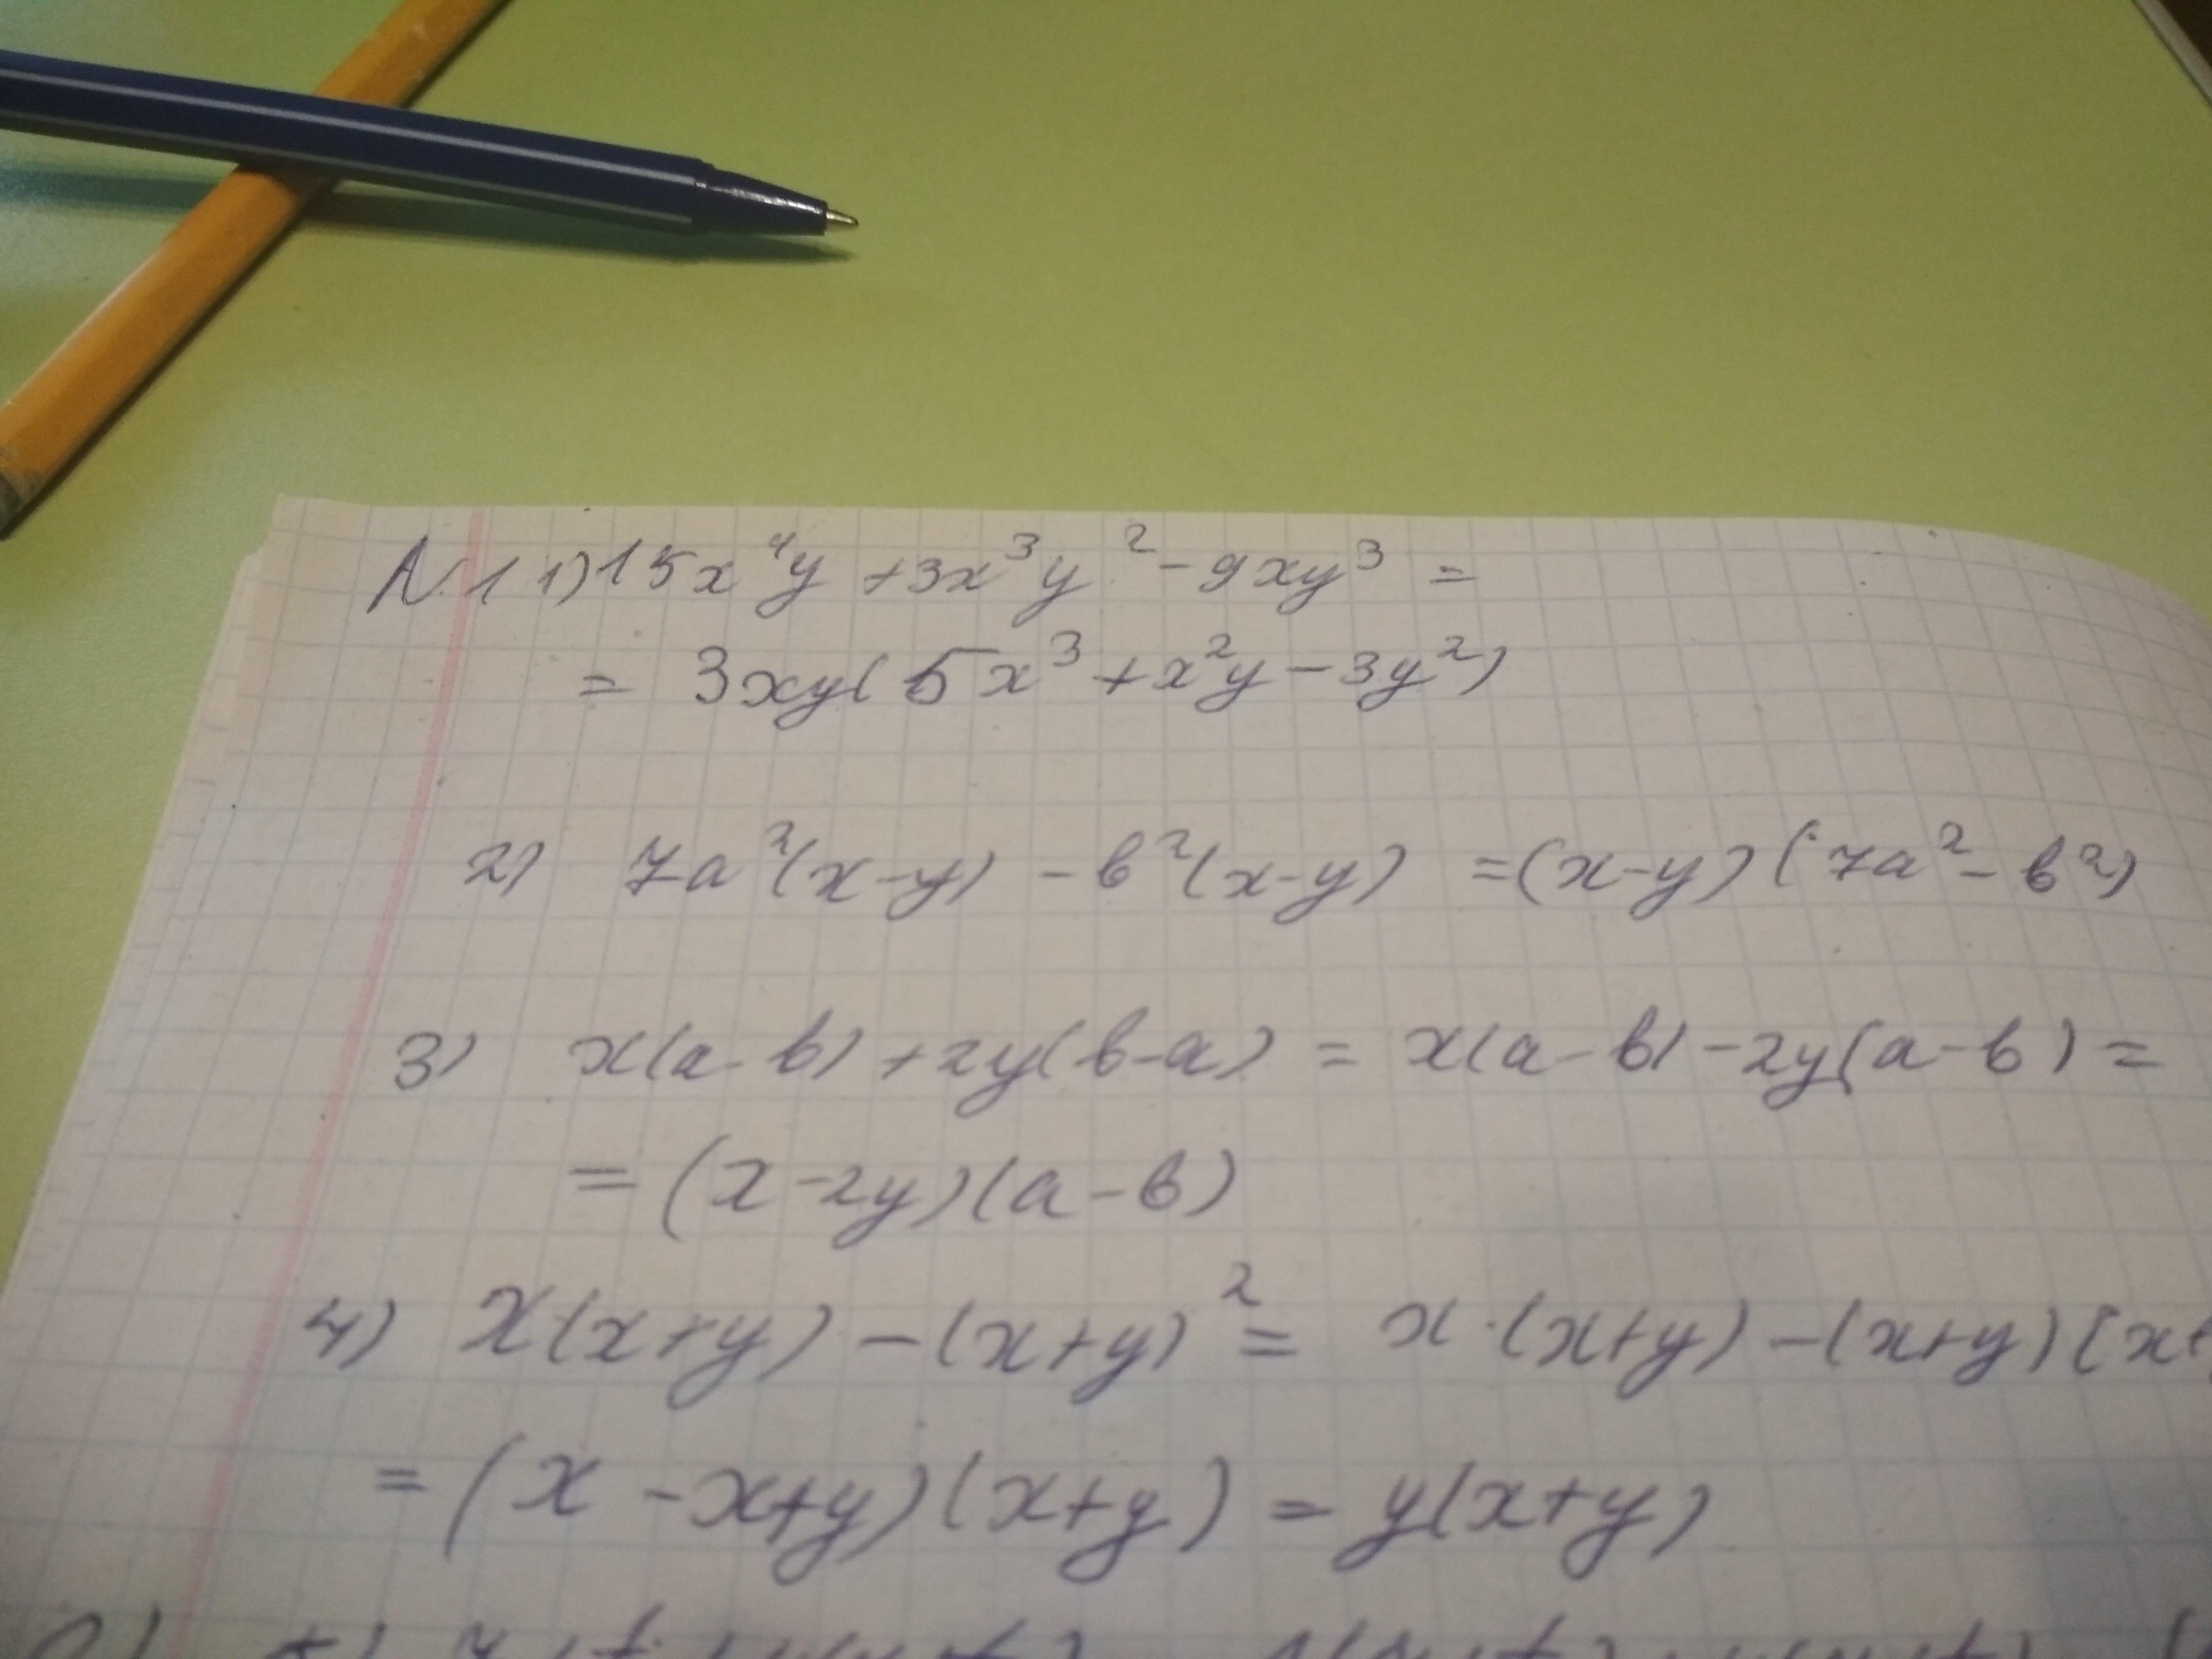 N.1 1) 15x⁴y + 3x³y² - 9xy³ =
= 3xy(5x³ + x²y - 3y²)
2) 7a²(x-y) - b²(x-y) = (x-y)(7a² - b²)
3) x(a-b) + 2y(b-a) = x(a-b) - 2y(a-b) =
= (x-2y)(a-b)
4) x(x+y) - (x+y)² = x·(x+y) - (x+y)(x+
= (x - x+y)(x+y) = y(x+y)